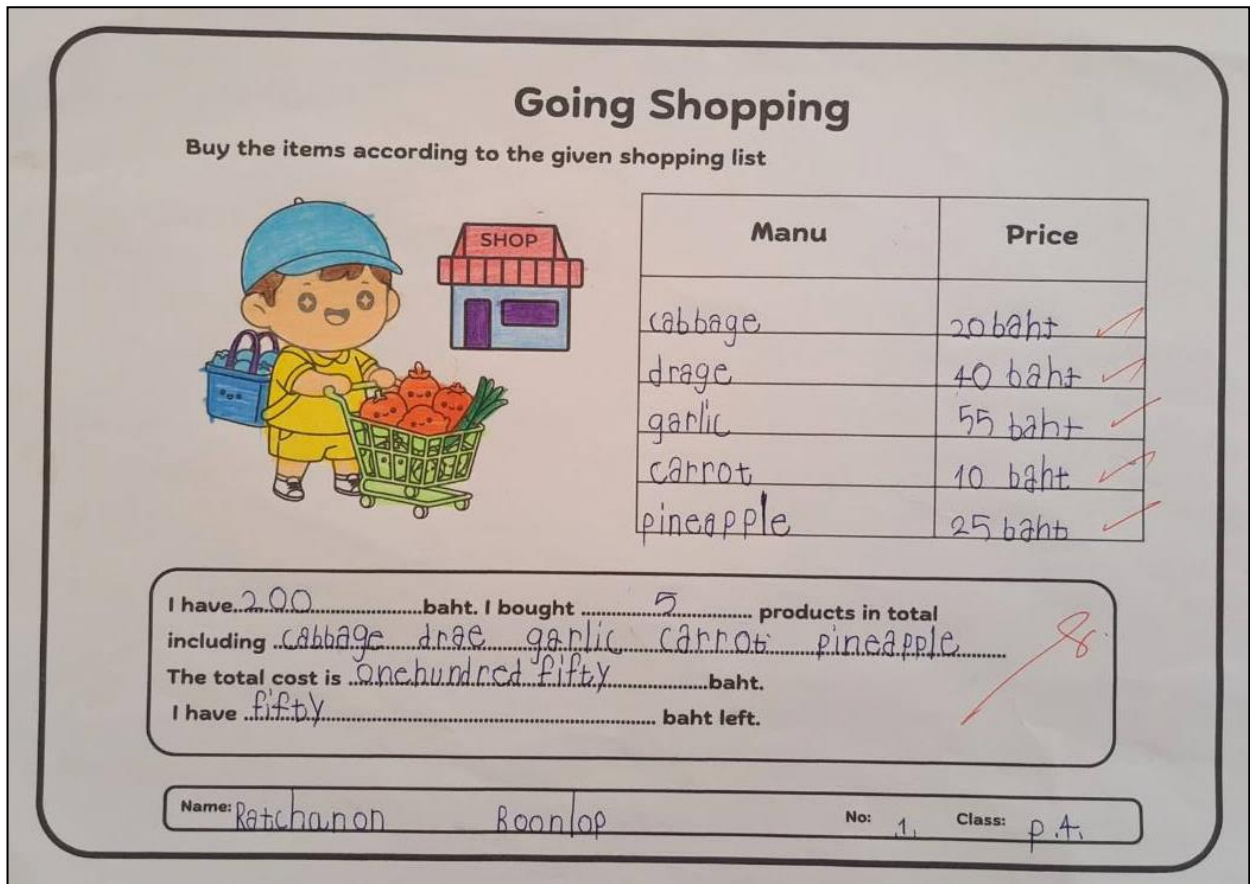 Going Shopping
Buy the items according to the given shopping list
SHOP
Manu Price
cabbage 20 baht
drage 40 baht
garlic 55 baht
carrot 10 baht
pineapple 25 baht
I have..200..............baht. I bought ..........5............ products in total
including ..cabbage drae garlic carrot pineapple......
The total cost is ..onehundred fifty..............baht.
I have ..fifty.................................... baht left.
8
Name: Ratchanon Boonlop No: 1. Class: p.4.